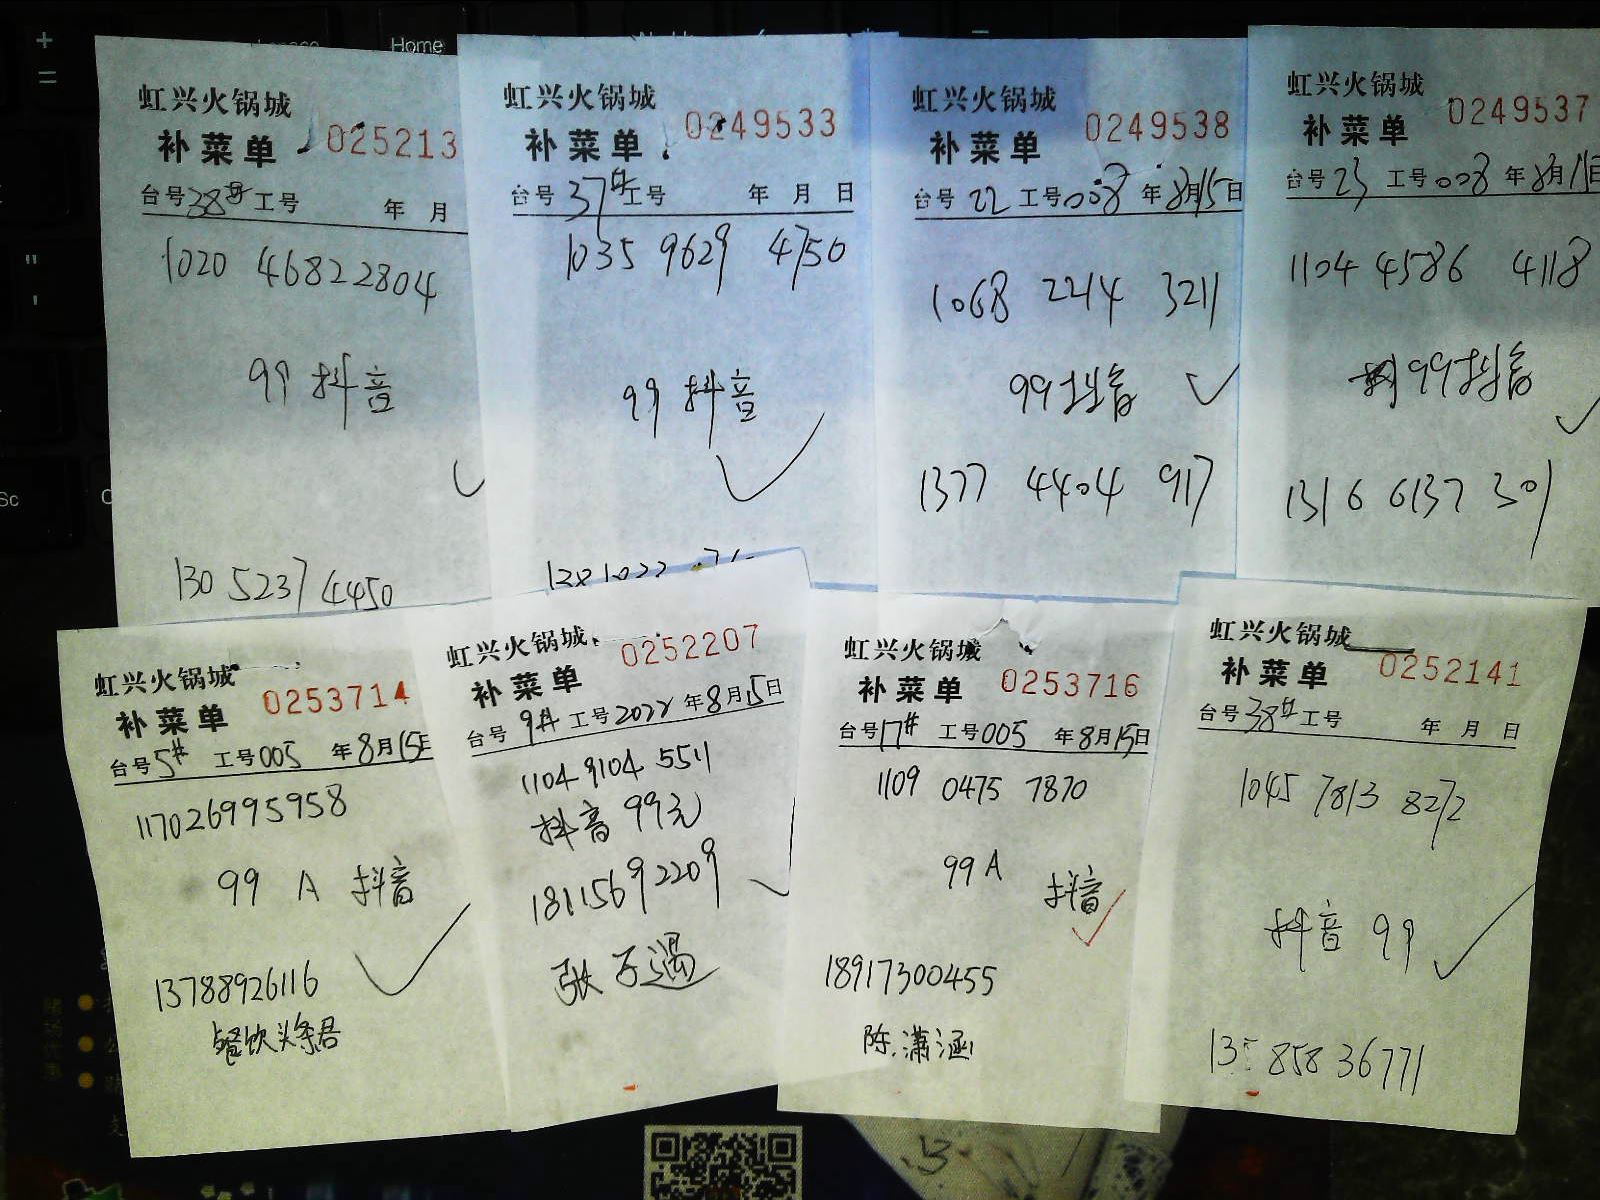 Home
虹兴火锅城
补菜单 025213
台号38# 工号 年 月
1020 46822804
99 抖音
130 5237 4450
虹兴火锅城
补菜单 0249533
台号37# 工号 年 月 日
1035 9629 4750
99 抖音
虹兴火锅城
补菜单 0249538
台号22 工号008 年8月15日
1068 2214 3211
99抖音
1377 4404 917
虹兴火锅城
补菜单 0249537
台号23 工号008 年8月15日
1104 4586 4118
99抖音
1316 6137 301
虹兴火锅城
补菜单 0253714
台号5# 工号005 年8月15日
117026995958
99 A 抖音
13788926116
餐饮头条君
虹兴火锅城
补菜单 0252207
台号9# 工号2022 年8月15日
1104 9104 5511
抖音 99元
18115692209
张子遏
虹兴火锅城
补菜单 0253716
台号17# 工号005 年8月15日
1109 0475 7870
99 A
抖音
18917300455
陈潇涵
虹兴火锅城
补菜单 0252141
台号38# 工号 年 月 日
1045 7813 8272
抖音 99
858 36771